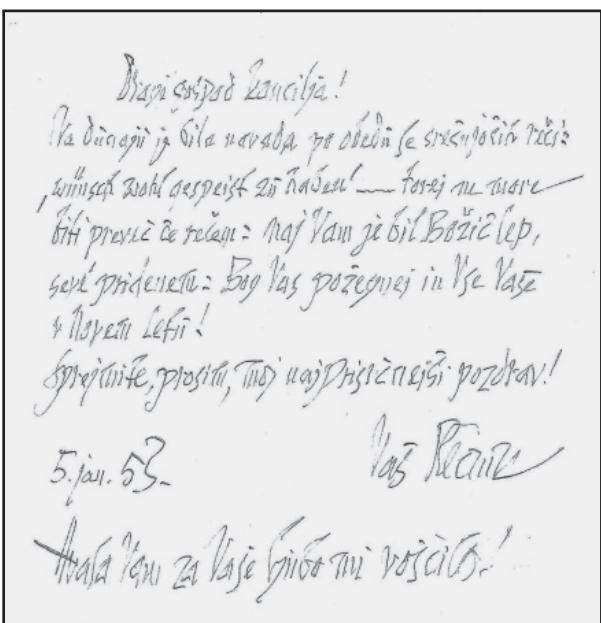 Dragi gospod Kancilja!
Na Dunaju je bila navada po obedu se srečujočih reči:
„wünsch wohl gespeist zu haben!“ — torej ne more
biti preveč če rečem: naj Vam je bil Božič lep,
sevé pridenem: Bog Vas požegnej in Vse Vaše
v Novem letu!
Sprejmite, prosim, moj najprisrčnejši pozdrav!
5. jan. 53.
Vaš Plečnik
Hvala Vam za Vaše ljubo mi voščilo!